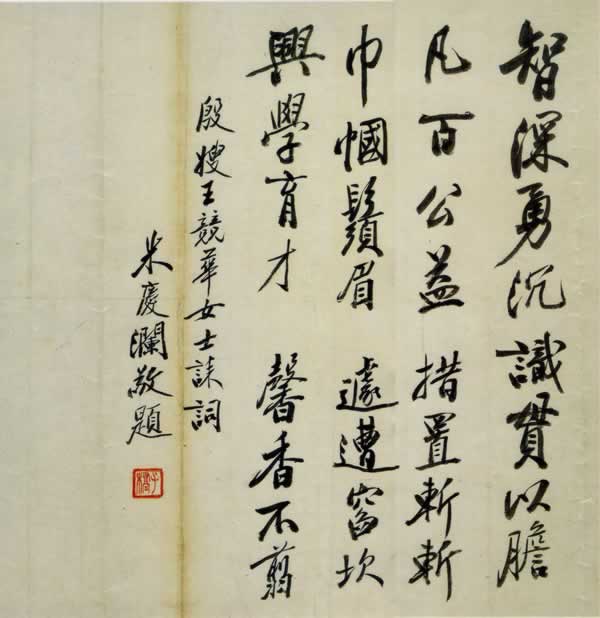 智深勇沉識貫以膽
凡百公益措置斬斬
巾幗鬚眉遽遭窞坎
興學育才馨香不翦
殷嫂王競華女士誄詞
米慶瀾敬題